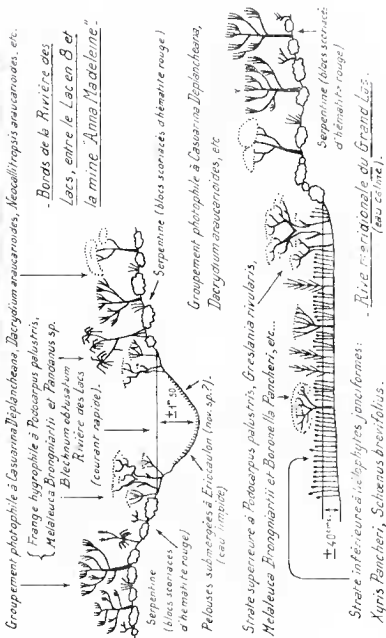 Groupement photophile à Casuarina Deplancheana, Dacrydium araucarioides, Neocallitropsis araucarioides, etc.
Frange hygrophile à Podocarpus palustris,
Melaleuca Brongniartii et Pandanus sp.
Blechnum obtusatum
Rivière des Lacs
(courant rapide).
- Bords de la Rivière des
Lacs, entre le Lac en 8 et
la mine "Anna Madeleine" -
Serpentine
(blocs scoriacés
d'hématite rouge)
± 1m50
Serpentine (blocs scoriacés d'hématite rouge)
Pelouses submergées à Eriocaulon (nov. sp.?).
(eau limpide)
Groupement photophile à Casuarina Deplancheana,
Dacrydium araucarioides, etc
Strate supérieure à Podocarpus palustris, Greslania rivularis,
Melaleuca Brongniartii et Boronella Pancheri, etc...
± 40cm
Serpentine (blocs scoriacés
d'hématite rouge)
Strate inférieure à hélophytes jonciformes:
Xyris Pancheri; Schœnus brevifolius.
- Rive méridionale du Grand Lac. -
(eau calme)